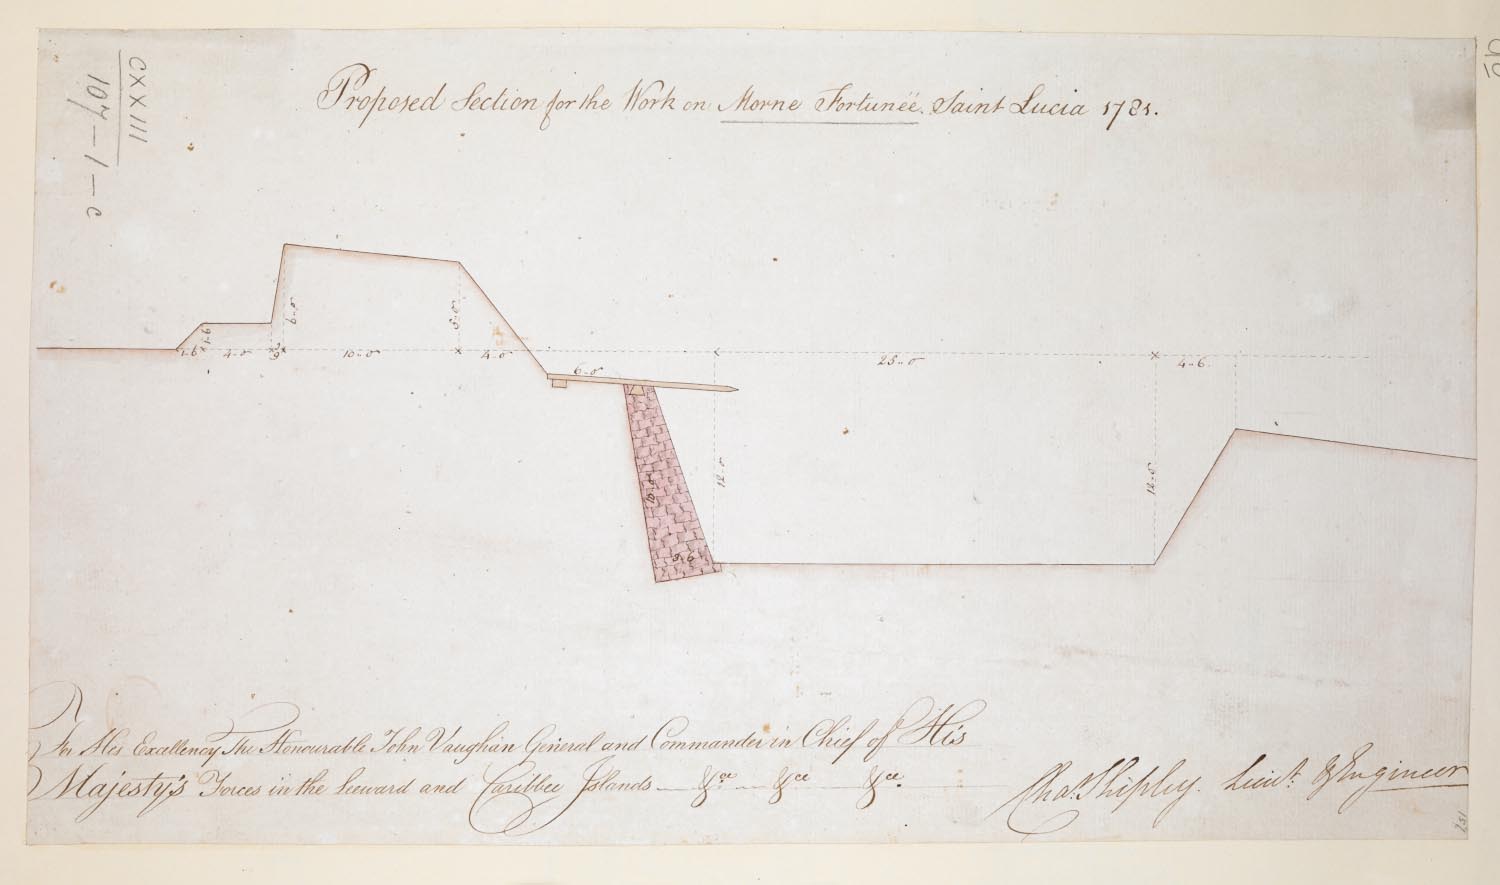 Proposed Section for the Work on Morne Fortunéë. Saint Lucia 1781.
CXXIII
107-1-c
1-6
1-6
4-0
9
6-0
10-0
5-0
4-0
6-0
25-0
4-6
10-0
12-0
12-0
For His Excellency The Honourable John Vaughan General and Commander in Chief of His
Majesty's Forces in the Leeward and Caribbee Islands &ca &ca &ca
Chas. Shipley. Lieut. & Engineer